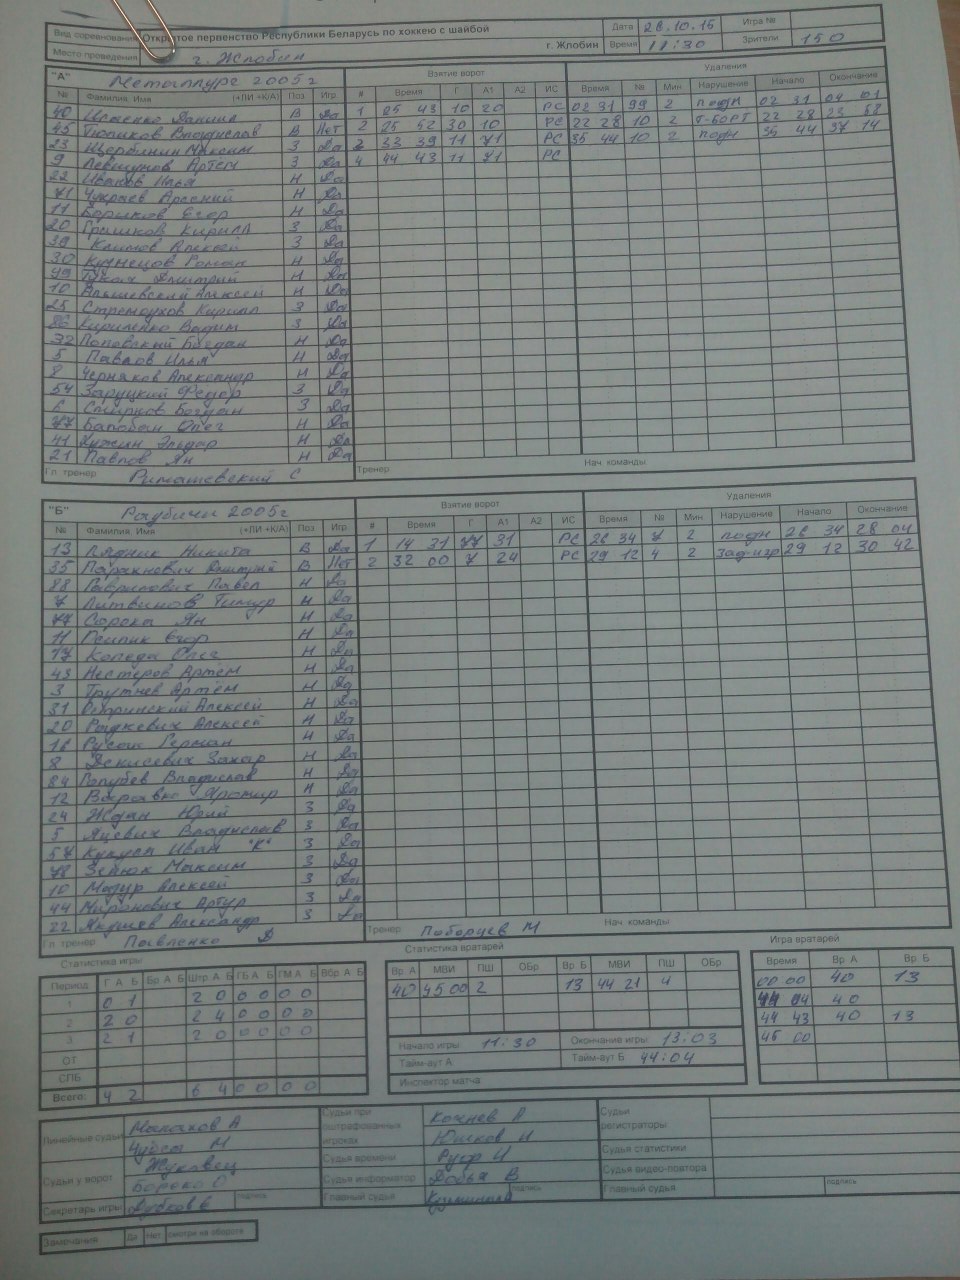 Вид соревнования Открытое первенство Республики Беларусь по хоккею с шайбой Дата 26.10.15 Игра №
Место проведения г. Жлобин г. Жлобин Время 11:30 Зрители 150
"А" Металлург 2005г Взятие ворот Удаления
№ Фамилия Имя (+ЛИ +К/А) Поз Игр # Время Г А1 А2 ИС Время № Мин Нарушение Начало Окончание
40 Данила В Да 1 05 43 10 20 РС 02 31 99 2 подн 02 31 04 01
45 Тюпиков Владислав В Нет 2 25 52 30 10 РС 22 28 10 2 т-борт 22 28 23 58
23 Щербинин Максим З Да 3 33 39 11 71 РС 35 44 10 2 подн 35 44 37 14
9 Левшунов Артем З Да 4 44 43 11 71 РС
22 Иванов Илья Н Да
71 Чукаев Арсений Н Да
11 Борисков Егор Н Да
20 Грашков Кирилл З Да
39 Климов Алексей З Да
30 Кузнецов Роман Н Да
49 Дмитрий Н Да
10 Альшевский Алексей Н Да
25 Стремоухов Кирилл З Да
86 Кириленко Вадим З Да
32 Поповский Богдан Н Да
5 Павлов Илья Н Да
8 Черняков Александр Н Да
54 Заруцкий Федор З Да
6 Смирнов Богдан З Да
77 Балобан Олег Н Да
41 Эльдар Н Да
21 Павлов Ян Н Да
Гл. тренер Римашевский С Тренер Нач. команды
"Б" Раубичи 2005г Взятие ворот Удаления
№ Фамилия Имя (+ЛИ +К/А) Поз Игр # Время Г А1 А2 ИС Время № Мин Нарушение Начало Окончание
13 Никита В Да 1 14 31 77 31 РС 26 34 7 2 подн 26 34 28 04
35 Парахневич Дмитрий В Нет 2 32 00 7 24 РС 29 12 4 2 зад-игр 29 12 30 42
88 Гаврилович Павел Н Да
7 Литвинов Тимур Н Да
77 Сорока Ян Н Да
11 Егор Н Да
17 Коледа Олег Н Да
43 Нестеров Артём Н Да
3 Трутнев Артём Н Да
31 Островский Алексей Н Да
20 Радкевич Алексей Н Да
16 Русак Герман Н Да
8 Денисевич Захар Н Да
84 Голубев Владислав Н Да
12 Варавко Яромир Н Да
24 Ждан Юрий З Да
5 Яцевич Владислав З Да
57 Кукуся Иван "К" З Да
78 Зенюк Максим З Да
10 Мазур Алексей З Да
44 Миронович Артур З Да
22 Якушев Александр З Да
Гл. тренер Павленко Д Тренер Поборцев М Нач. команды
Статистика игры Статистика вратарей Игра вратарей
Период Г А Б Бр А Б Штр А Б ГБ А Б ГМ А Б Вбр А Б Вр. А МВИ ПШ ОБр Вр. Б МВИ ПШ ОБр Время Вр. А Вр. Б
1 0 1 2 0 0 0 0 0 40 45 00 2 13 44 21 4 00 00 40 13
2 2 0 2 4 0 0 0 0 44 04 40
3 2 1 2 0 0 0 0 0 44 43 40 13
ОТ Начало игры 11:30 Окончание игры 13:03 45 00
СПБ Тайм-аут А Тайм-аут Б 44:04
Всего: 4 2 6 4 0 0 0 0 Инспектор матча:
Линейные судьи Малахов А Судьи при оштрафованных игроках Кожнев А Судьи регистраторы
Чудов М Юшков И
Судьи у ворот Жуковец Судья времени Руор И Судья статистики
Бороко О Судья информатор Добья В Судья видео-повтора
Секретарь игры Дубков В подпись Главный судья подпись Главный судья подпись
Замечания Да Нет смотри на обороте